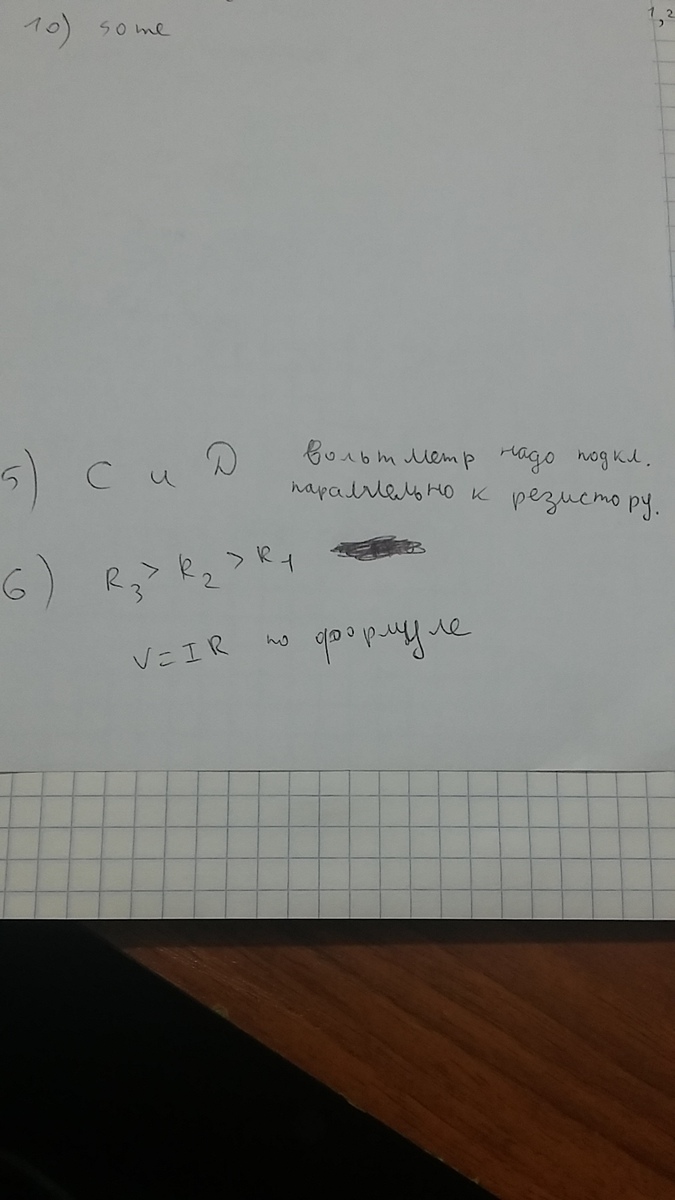 10) some
1,2
5) C и D вольтметр надо подкл.
параллельно к резистору.
6) R3 > R2 > R1
V=IR по формуле